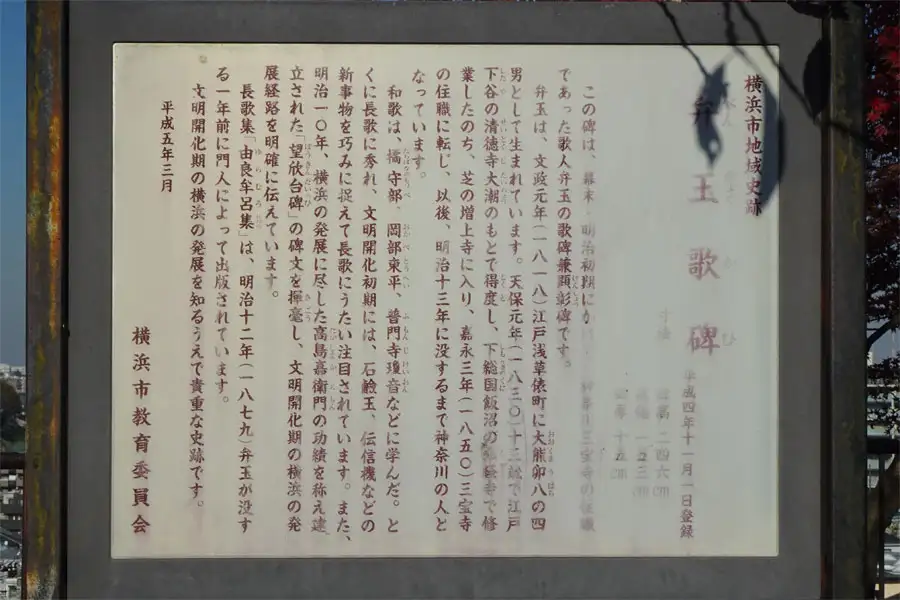 横浜市地域史跡
弁玉歌碑
平成四年十一月一日登録
二四六cm
この碑は、幕末・明治初期に 三宝寺の住職
であった歌人弁玉の歌碑兼顕彰碑です。
弁玉は、文政元年(一八一八)江戸浅草俵町に大熊卯八の四
男として生まれています。天保元年(一八三〇)十三歳で江戸
下谷の清徳寺大潮のもとで得度し、下総国飯沼の 寺で修
業したのち、芝の増上寺に入り、嘉永三年(一八五〇)三宝寺
の住職に転じ、以後、明治十三年に没するまで神奈川の人と
なっています。
和歌は、橘守部、岡部東平、普門寺瓊音などに学んだ。と
くに長歌に秀れ、文明開化初期には、石鹼玉、伝信機などの
新事物を巧みに捉えて長歌にうたい注目されています。また、
明治一〇年、横浜の発展に尽した高島嘉衛門の功績を称え建
立された「望欣台碑」の碑文を揮毫し、文明開化期の横浜の発
展経路を明確に伝えています。
長歌集「由良牟呂集」は、明治十二年(一八七九)弁玉が没す
る一年前に門人によって出版されています。
文明開化期の横浜の発展を知るうえで貴重な史跡です。
平成五年三月
横浜市教育委員会